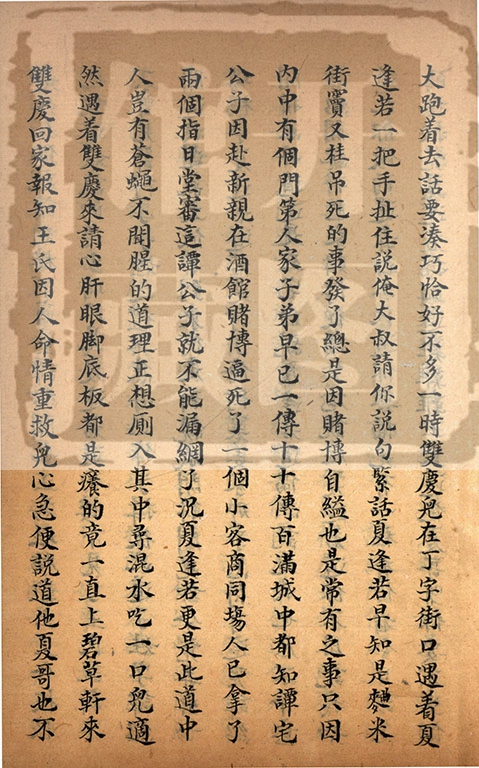 大跑着去話要湊巧恰好不多一時雙慶兒在丁字街口遇着夏
逢若一把手扯住說俺大叔請你說句緊話夏逢若早知是麵米
街竇又桂吊死的事發了總是因賭博自縊也是常有之事只因
內中有個門第人家子弟早已一傳十十傳百滿城中都知譚宅
公子因赴新親在酒館賭博逼死了一個小客商同場人已拿了
兩個指日堂審這譚公子就不能漏網了況夏逢若更是此道中
人豈有蒼蠅不聞腥的道理正想厠入其中尋混水吃一口兒適
然遇着雙慶來請心肝眼脚底板都是癢的竟一直上碧草軒來
雙慶回家報知王氏因人命情重救兒心急便說道他夏哥也不